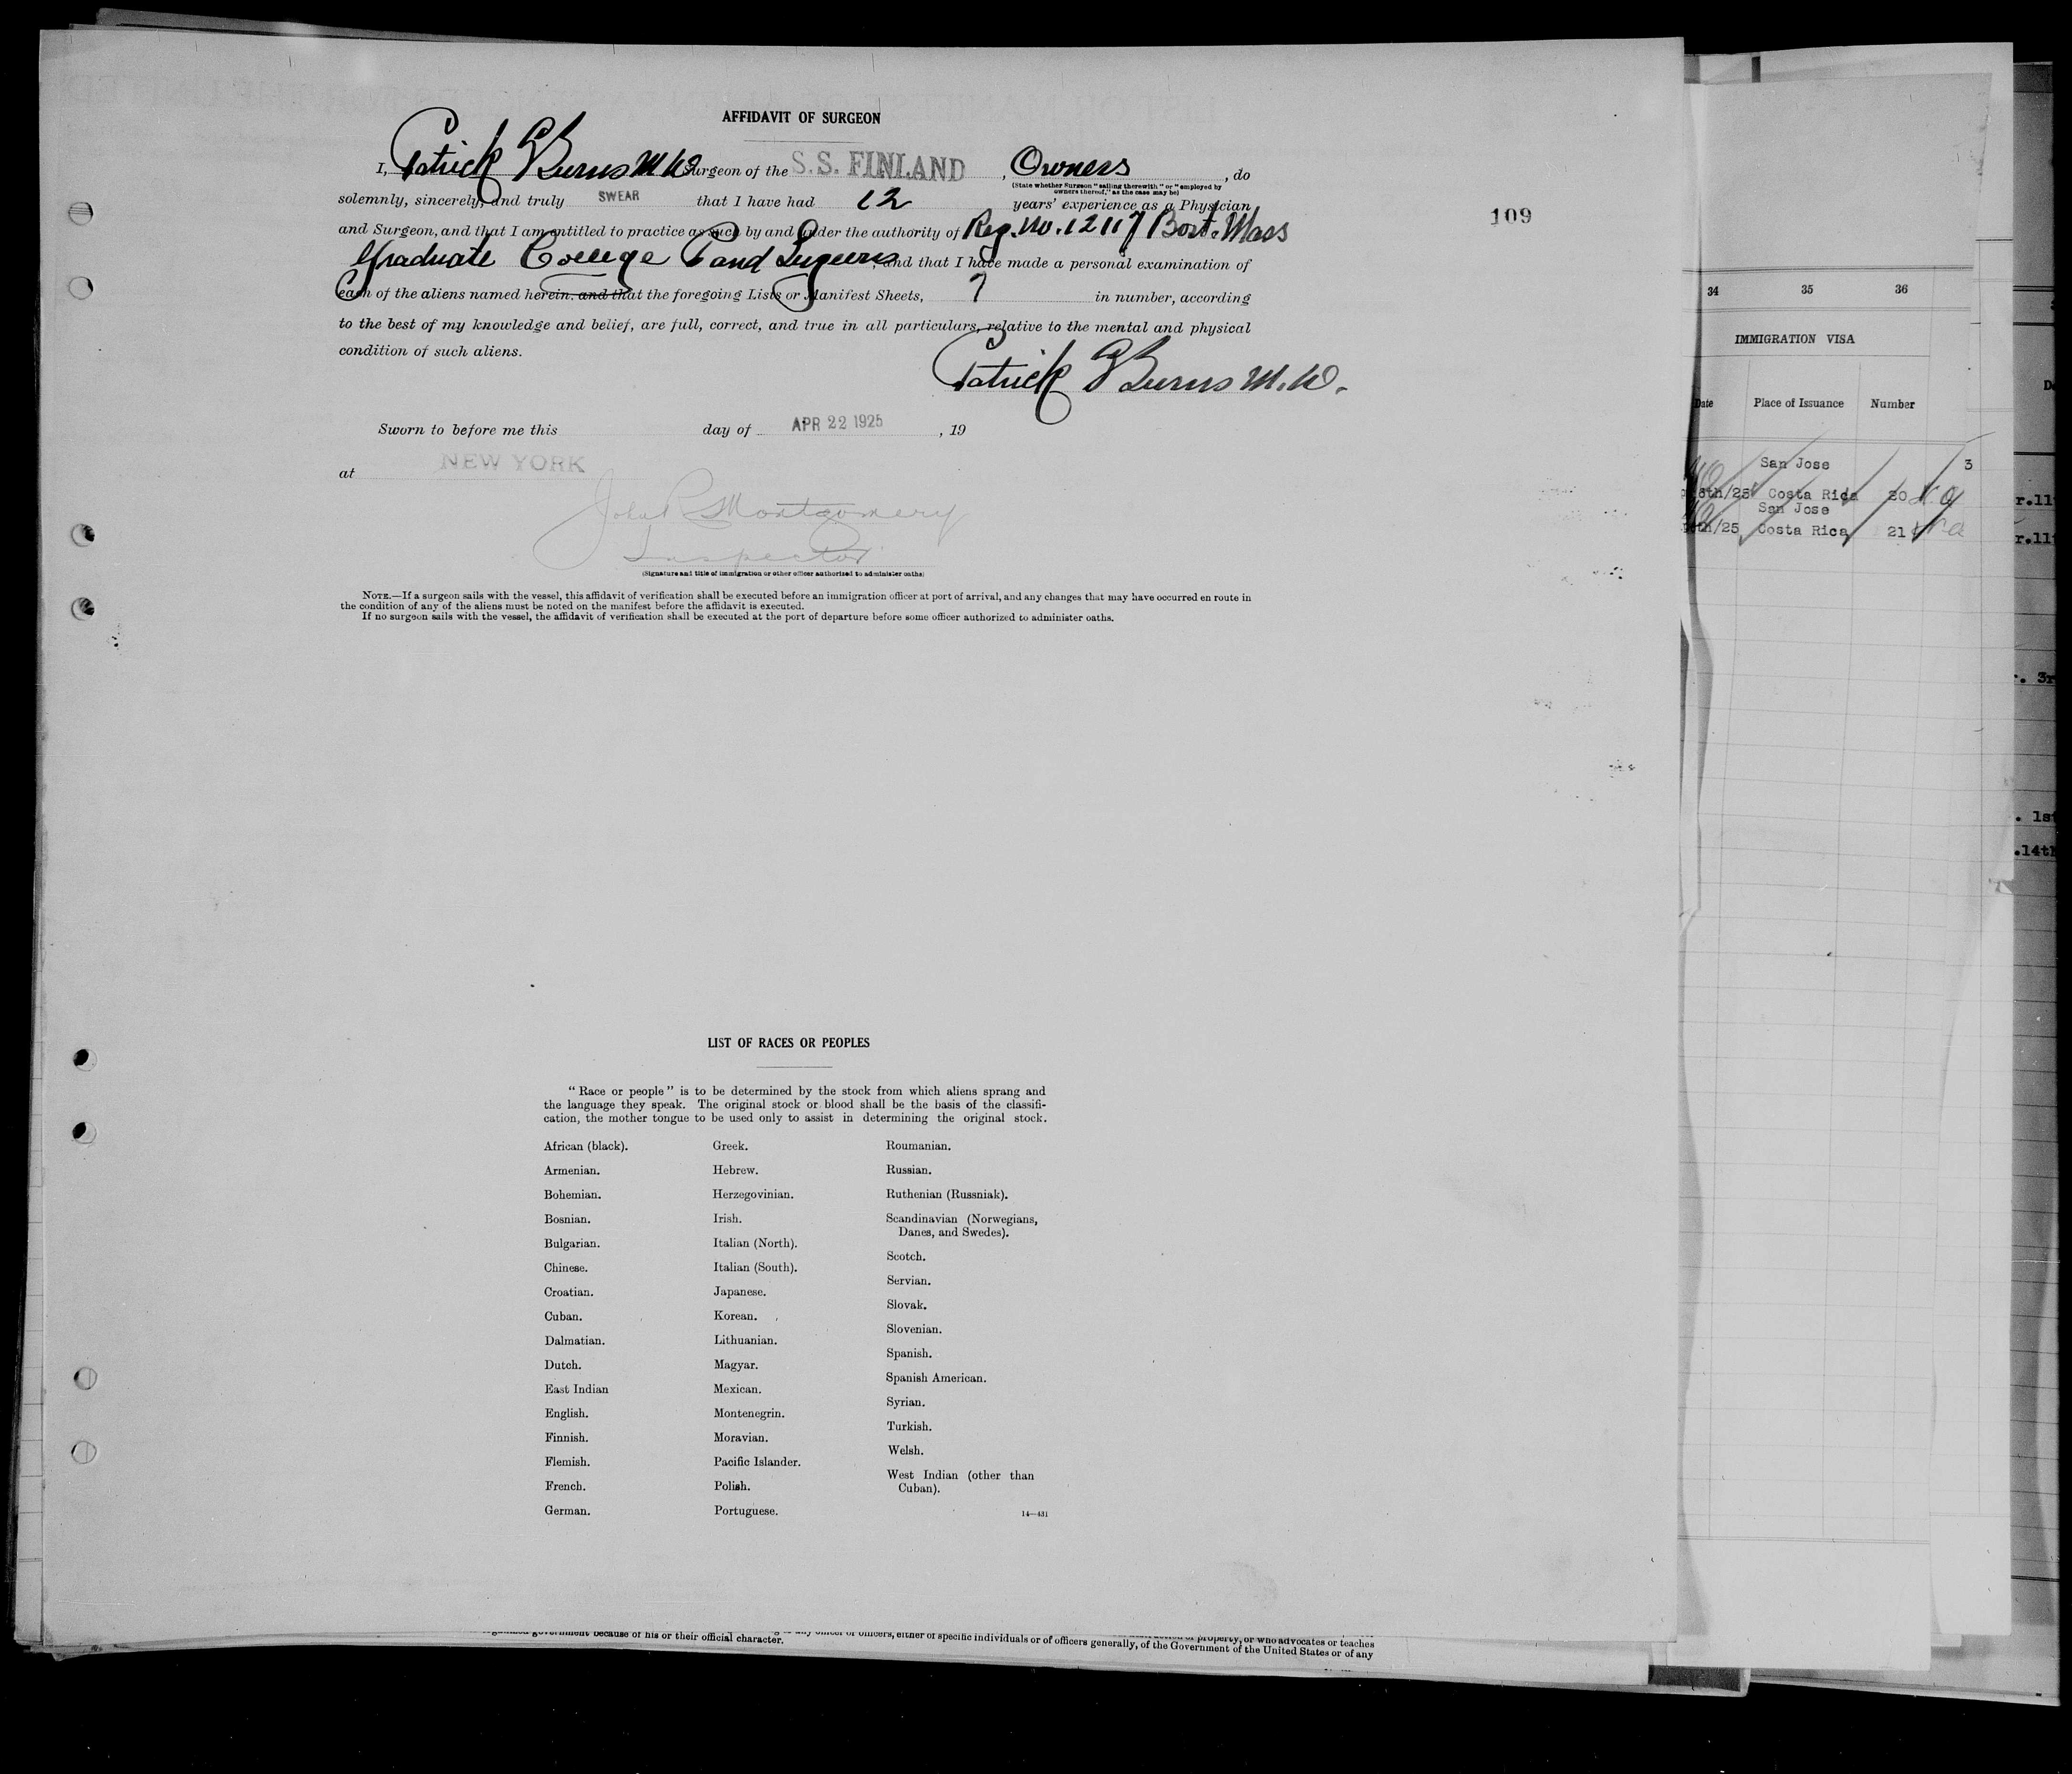 AFFIDAVIT OF SURGEON
I, Patrick Burns M.D. Surgeon of the S.S. FINLAND, Owners, do
(State whether Surgeon "sailing therewith" or "employed by
owners thereof," as the case may be)
solemnly, sincerely, and truly SWEAR that I have had 12 years' experience as a Physician
109
and Surgeon, and that I am entitled to practice as such by and under the authority of Reg. No. 12117 Bost. Mass
Graduate College P and Surgeons, and that I have made a personal examination of
each of the aliens named herein, and that the foregoing Lists or Manifest Sheets, 7 in number, according
to the best of my knowledge and belief, are full, correct, and true in all particulars, relative to the mental and physical
condition of such aliens.
Patrick Burns M.D.
Sworn to before me this day of APR 22 1925, 19
at NEW YORK
John R Montgomery
Inspector
(Signature and title of immigration or other officer authorized to administer oaths)
NOTE.—If a surgeon sails with the vessel, this affidavit of verification shall be executed before an immigration officer at port of arrival, and any changes that may have occurred en route in
the condition of any of the aliens must be noted on the manifest before the affidavit is executed.
If no surgeon sails with the vessel, the affidavit of verification shall be executed at the port of departure before some officer authorized to administer oaths.
LIST OF RACES OR PEOPLES
"Race or people" is to be determined by the stock from which aliens sprang and
the language they speak. The original stock or blood shall be the basis of the classifi-
cation, the mother tongue to be used only to assist in determining the original stock.
African (black).
Armenian.
Bohemian.
Bosnian.
Bulgarian.
Chinese.
Croatian.
Cuban.
Dalmatian.
Dutch.
East Indian
English.
Finnish.
Flemish.
French.
German.
Greek.
Hebrew.
Herzegovinian.
Irish.
Italian (North).
Italian (South).
Japanese.
Korean.
Lithuanian.
Magyar.
Mexican.
Montenegrin.
Moravian.
Pacific Islander.
Polish.
Portuguese.
Roumanian.
Russian.
Ruthenian (Russniak).
Scandinavian (Norwegians,
Danes, and Swedes).
Scotch.
Servian.
Slovak.
Slovenian.
Spanish.
Spanish American.
Syrian.
Turkish.
Welsh.
West Indian (other than
Cuban).
14—431
34 35 36
IMMIGRATION VISA
Date Place of Issuance Number
San Jose 3
6th/25 Costa Rica 20
San Jose
th/25 Costa Rica 21
r.11
r.11
. 3r
. 1s
.14th
property, or who advocates or teaches
officers, either of specific individuals or of officers generally, of the Government of the United States or of any
government because of his or their official character.